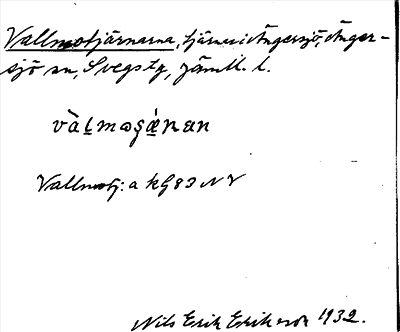 Vallmotjärnarna, tjärnar i Ängersjö, Änger-
sjö sn, Svegs tg, Jämtl. l.
vàl̠moʂæ̀nan
Vallmotj: a kG 83 NV
Nils Erik Eriksson 1932.